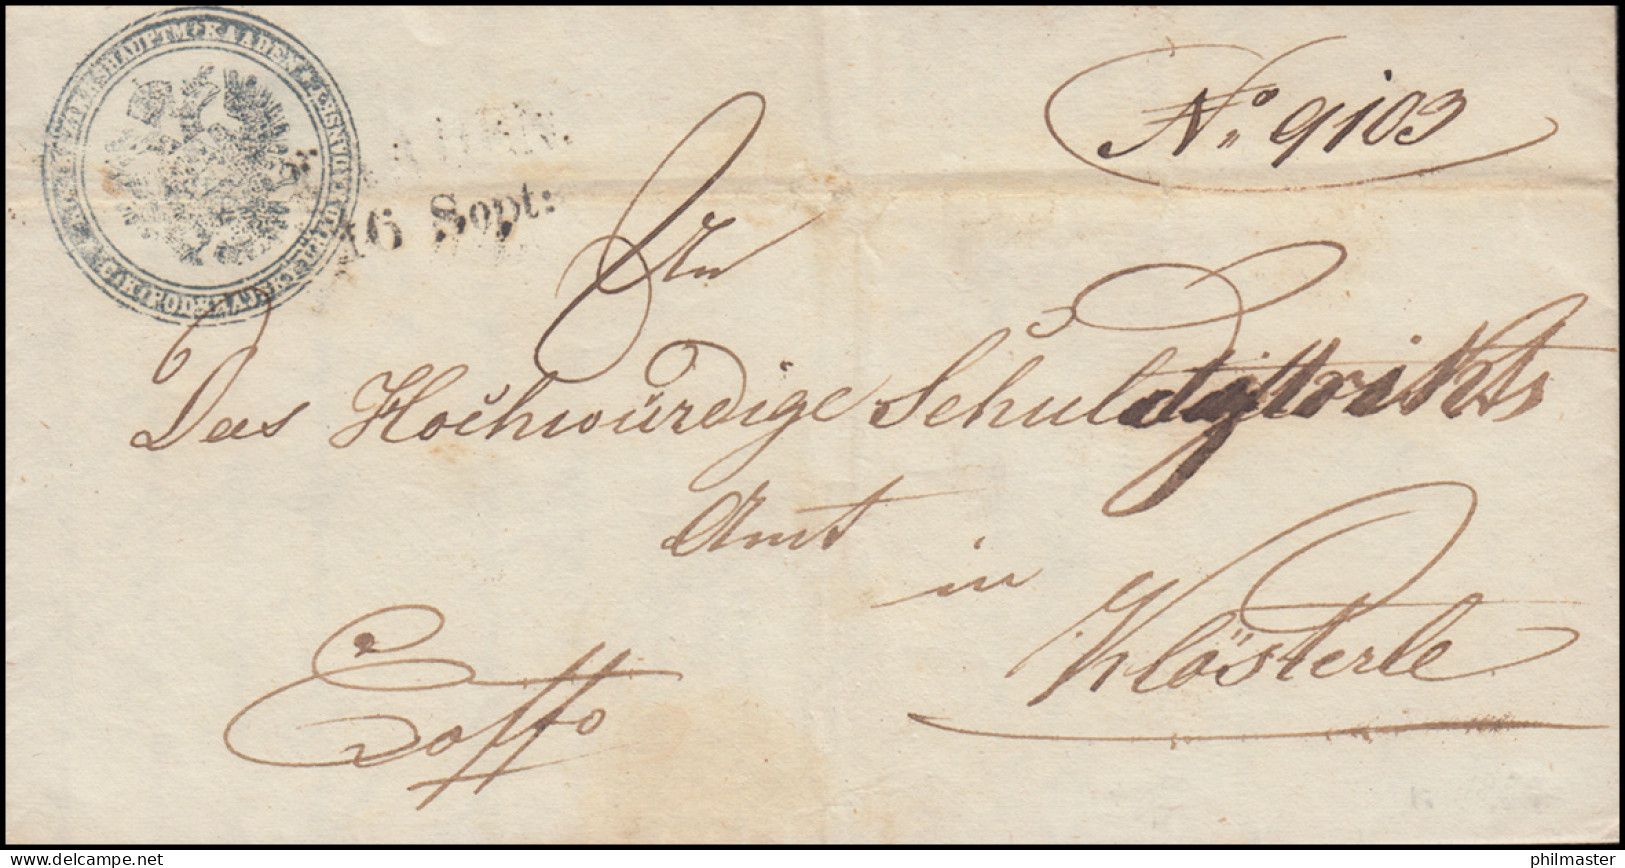 No 9103
16 Sept:
An
Das Hochwürdige Schuldistrikts
Amt
in
Klösterle
Exoffo
delcampe.net
philmaster